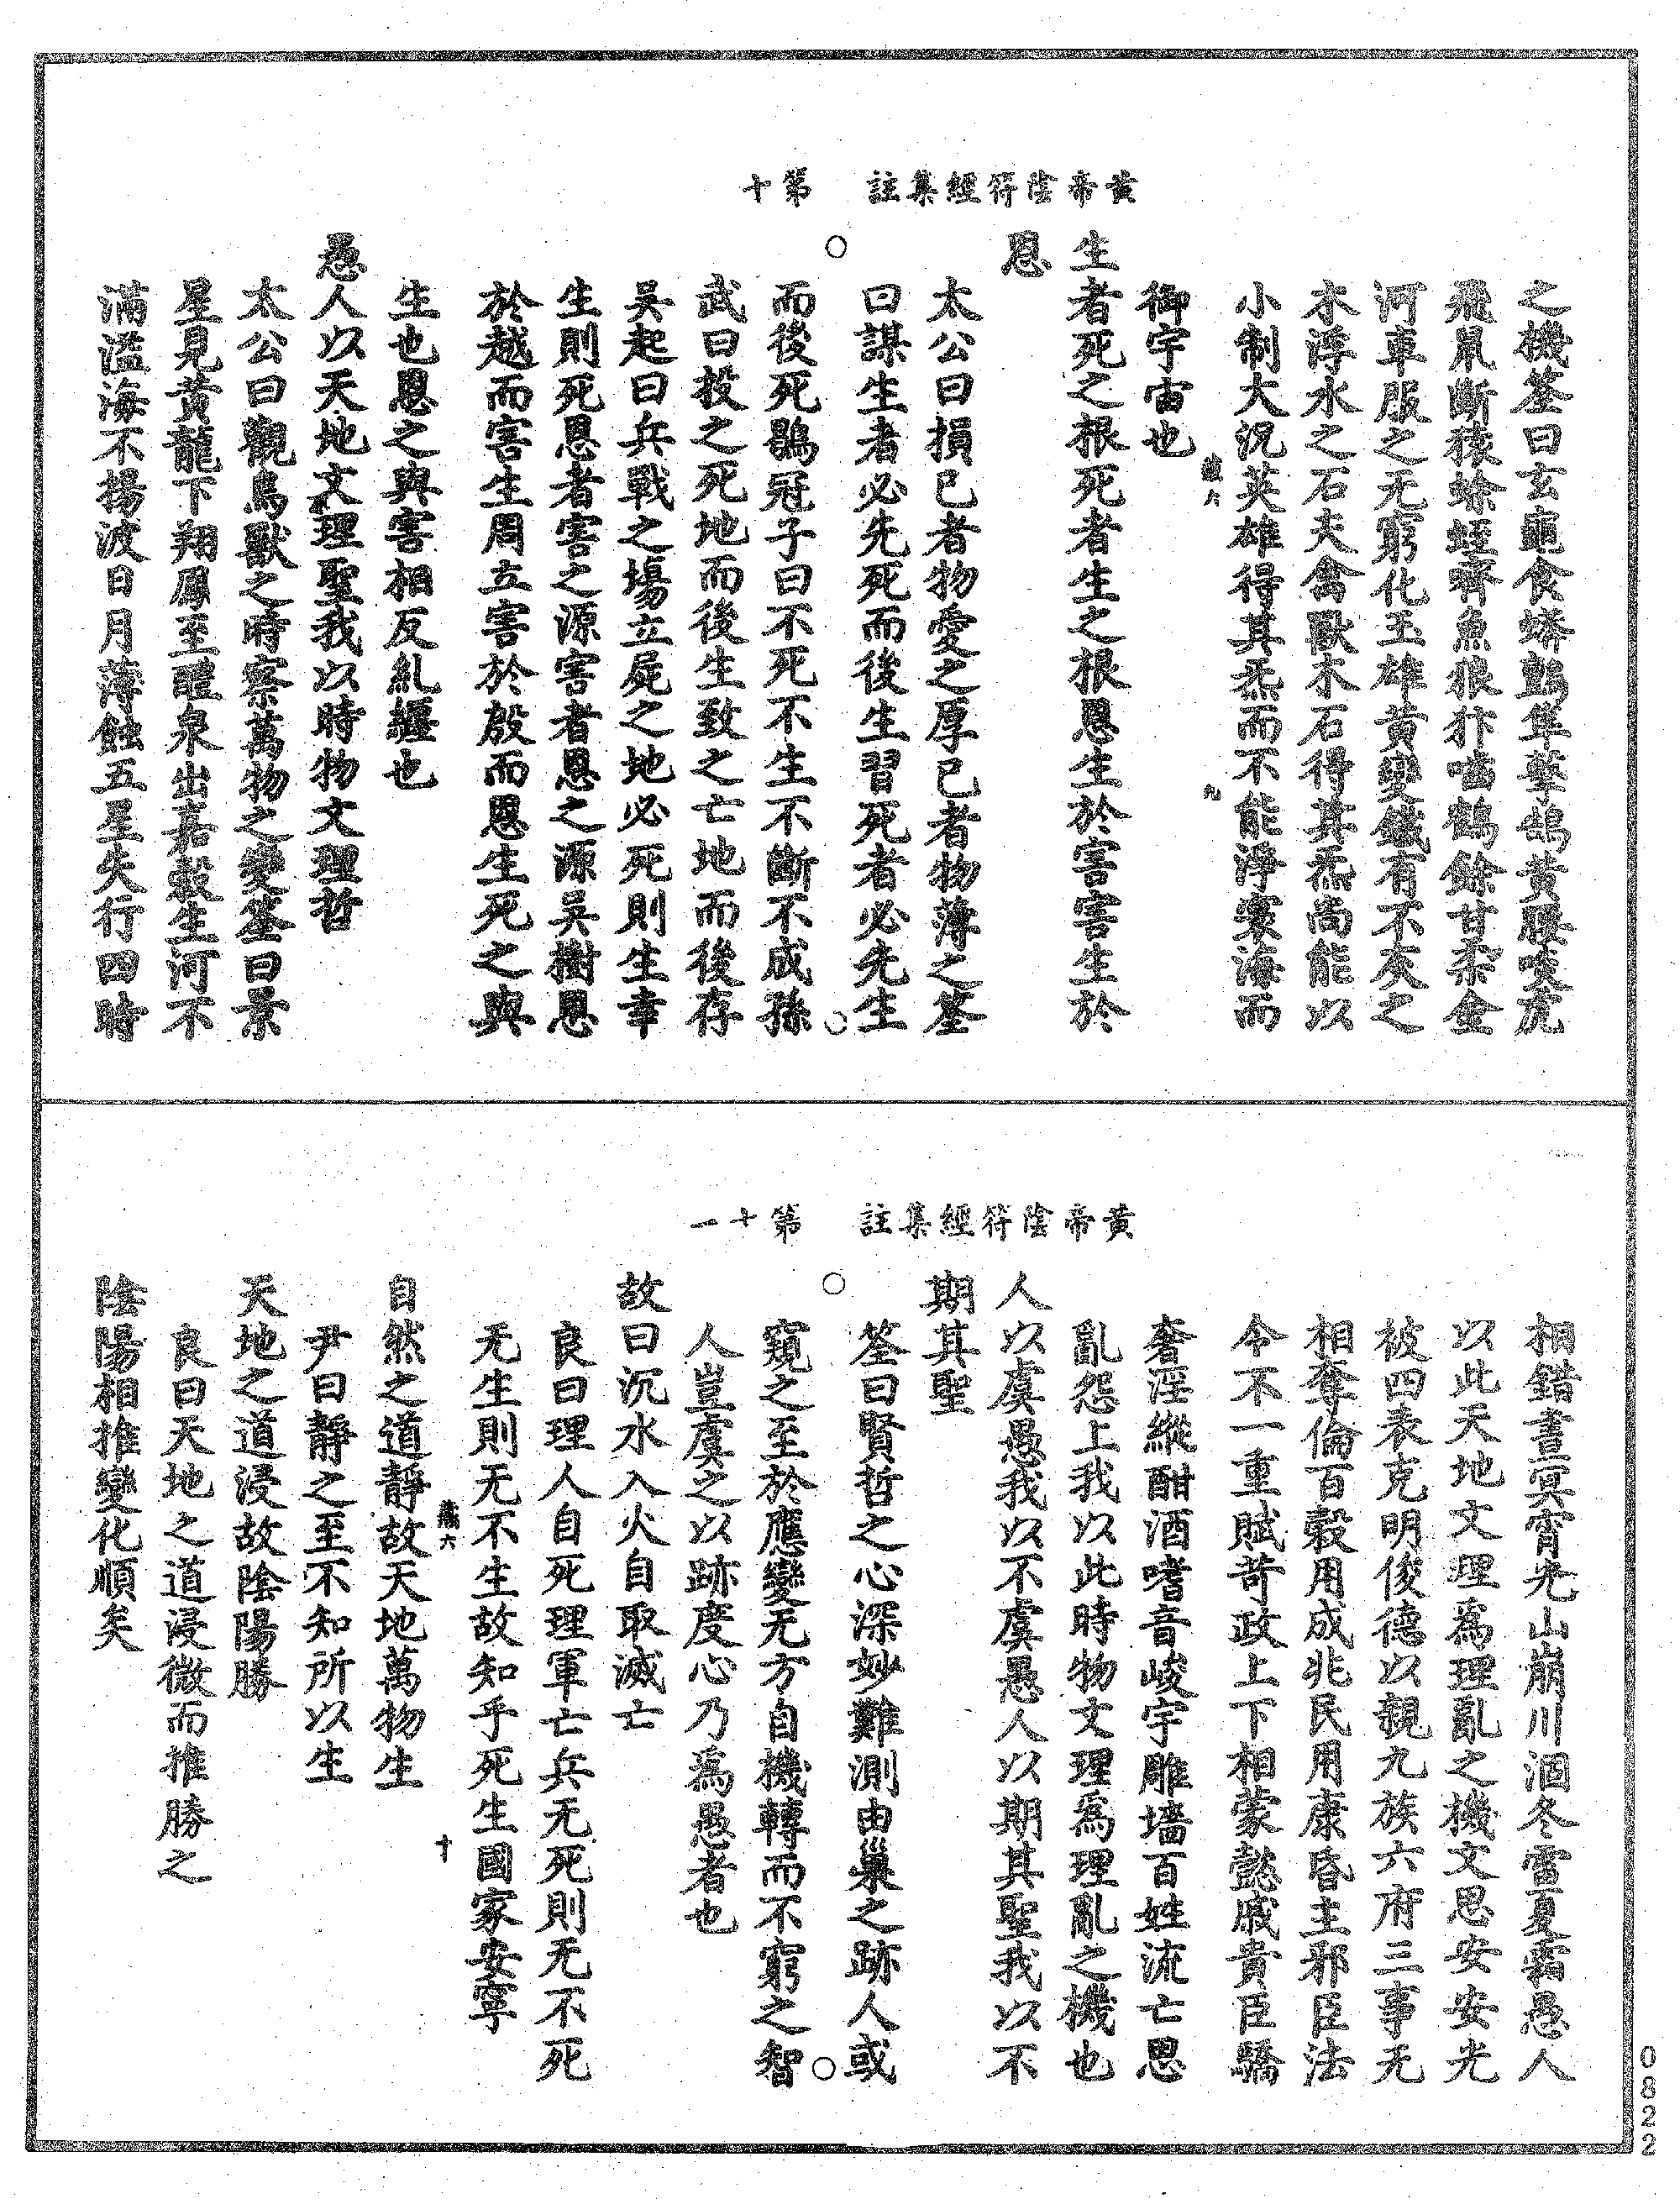 黃帝陰符經集註　第十
之機筌曰玄龜食蟒鸇隼擊鵠黃腰啖虎
飛鼠斷猿蜍蛭嚌魚狼犺嚙鶴餘甘柔金
河車服之无窮化玉雄黃變鐵有不灰之
木浮水之石夫禽獸木石得其炁尚能以
小制大況英雄得其炁而不能淨寰海而
九
御宇宙也
生者死之根死者生之根恩生於害害生於
恩
太公曰損已者物愛之厚已者物薄之筌
曰謀生者必先死而後生習死者必先生
而後死鶡冠子曰不死不生不斷不成孫
武曰投之死地而後生致之亡地而後存
吳起曰兵戰之場立屍之地必死則生幸
生則死恩者害之源害者恩之源吳樹恩
於越而害生周立害於殷而恩生死之與
生也恩之與害相反糺纏也
愚人以天地文理聖我以時物文理哲
太公曰觀鳥獸之時察萬物之變筌曰景
星見黃龍下翔鳳至醴泉出嘉穀生河不
滿溢海不揚波日月薄蝕五星失行四時
黃帝陰符經集註　第十一
相錯晝冥宵光山崩川涸冬雷夏霜愚人
以此天地文理爲理亂之機文思安安光
被四表克明俊德以親九族六府三事无
相奪倫百穀用成兆民用康昏主邪臣法
令不一重賦苛政上下相蒙懿戚貴臣驕
奢淫縱酣酒嗜音峻宇雕墻百姓流亡思
亂怨上我以此時物文理爲理亂之機也
人以虞愚我以不虞愚人以期其聖我以不
期其聖
筌曰賢哲之心深妙難測由巢之跡人或
窺之至於應變无方自機轉而不窮之智
人豈虞之以跡度心乃爲愚者也
故曰沉水入火自取滅亡
良曰理人自死理軍亡兵无死則无不死
无生則无不生故知乎死生國家安寧
十
自然之道靜故天地萬物生
尹曰靜之至不知所以生
天地之道浸故陰陽勝
良曰天地之道浸微而推勝之
陰陽相推變化順矣
0822